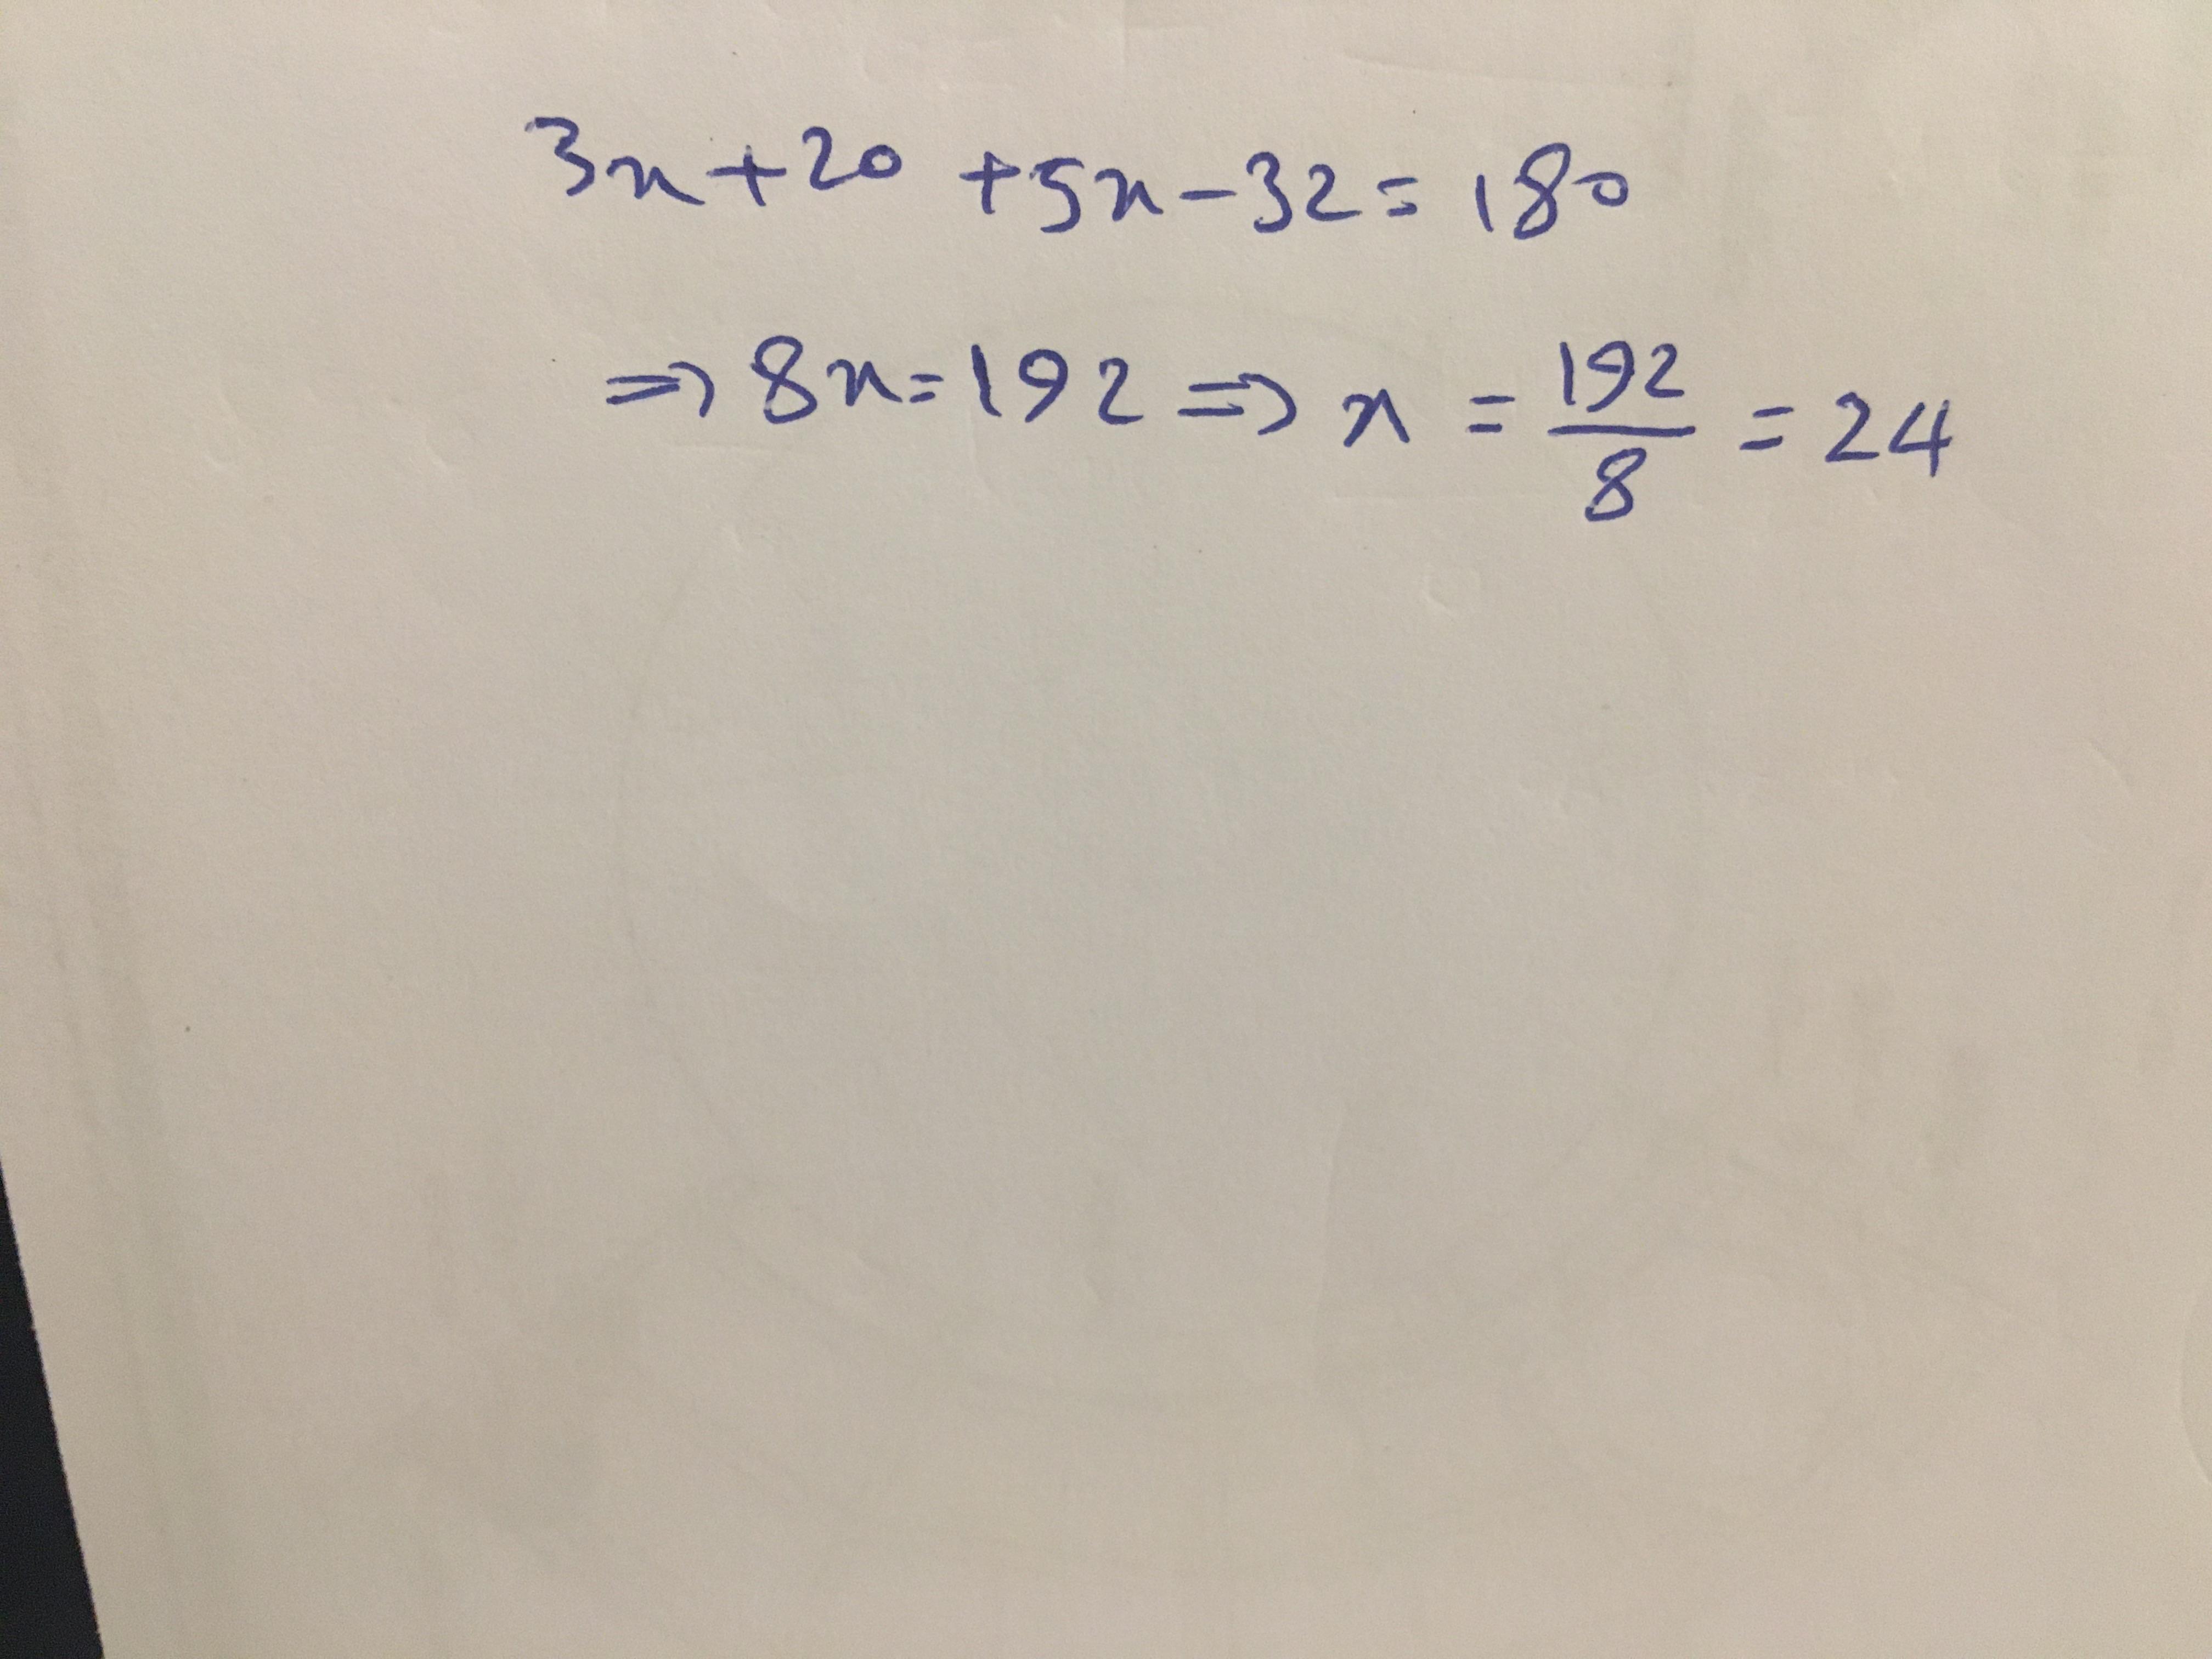 3x+20 +5x-32=180
⇒ 8x=192 ⇒ x = 192/8 = 24